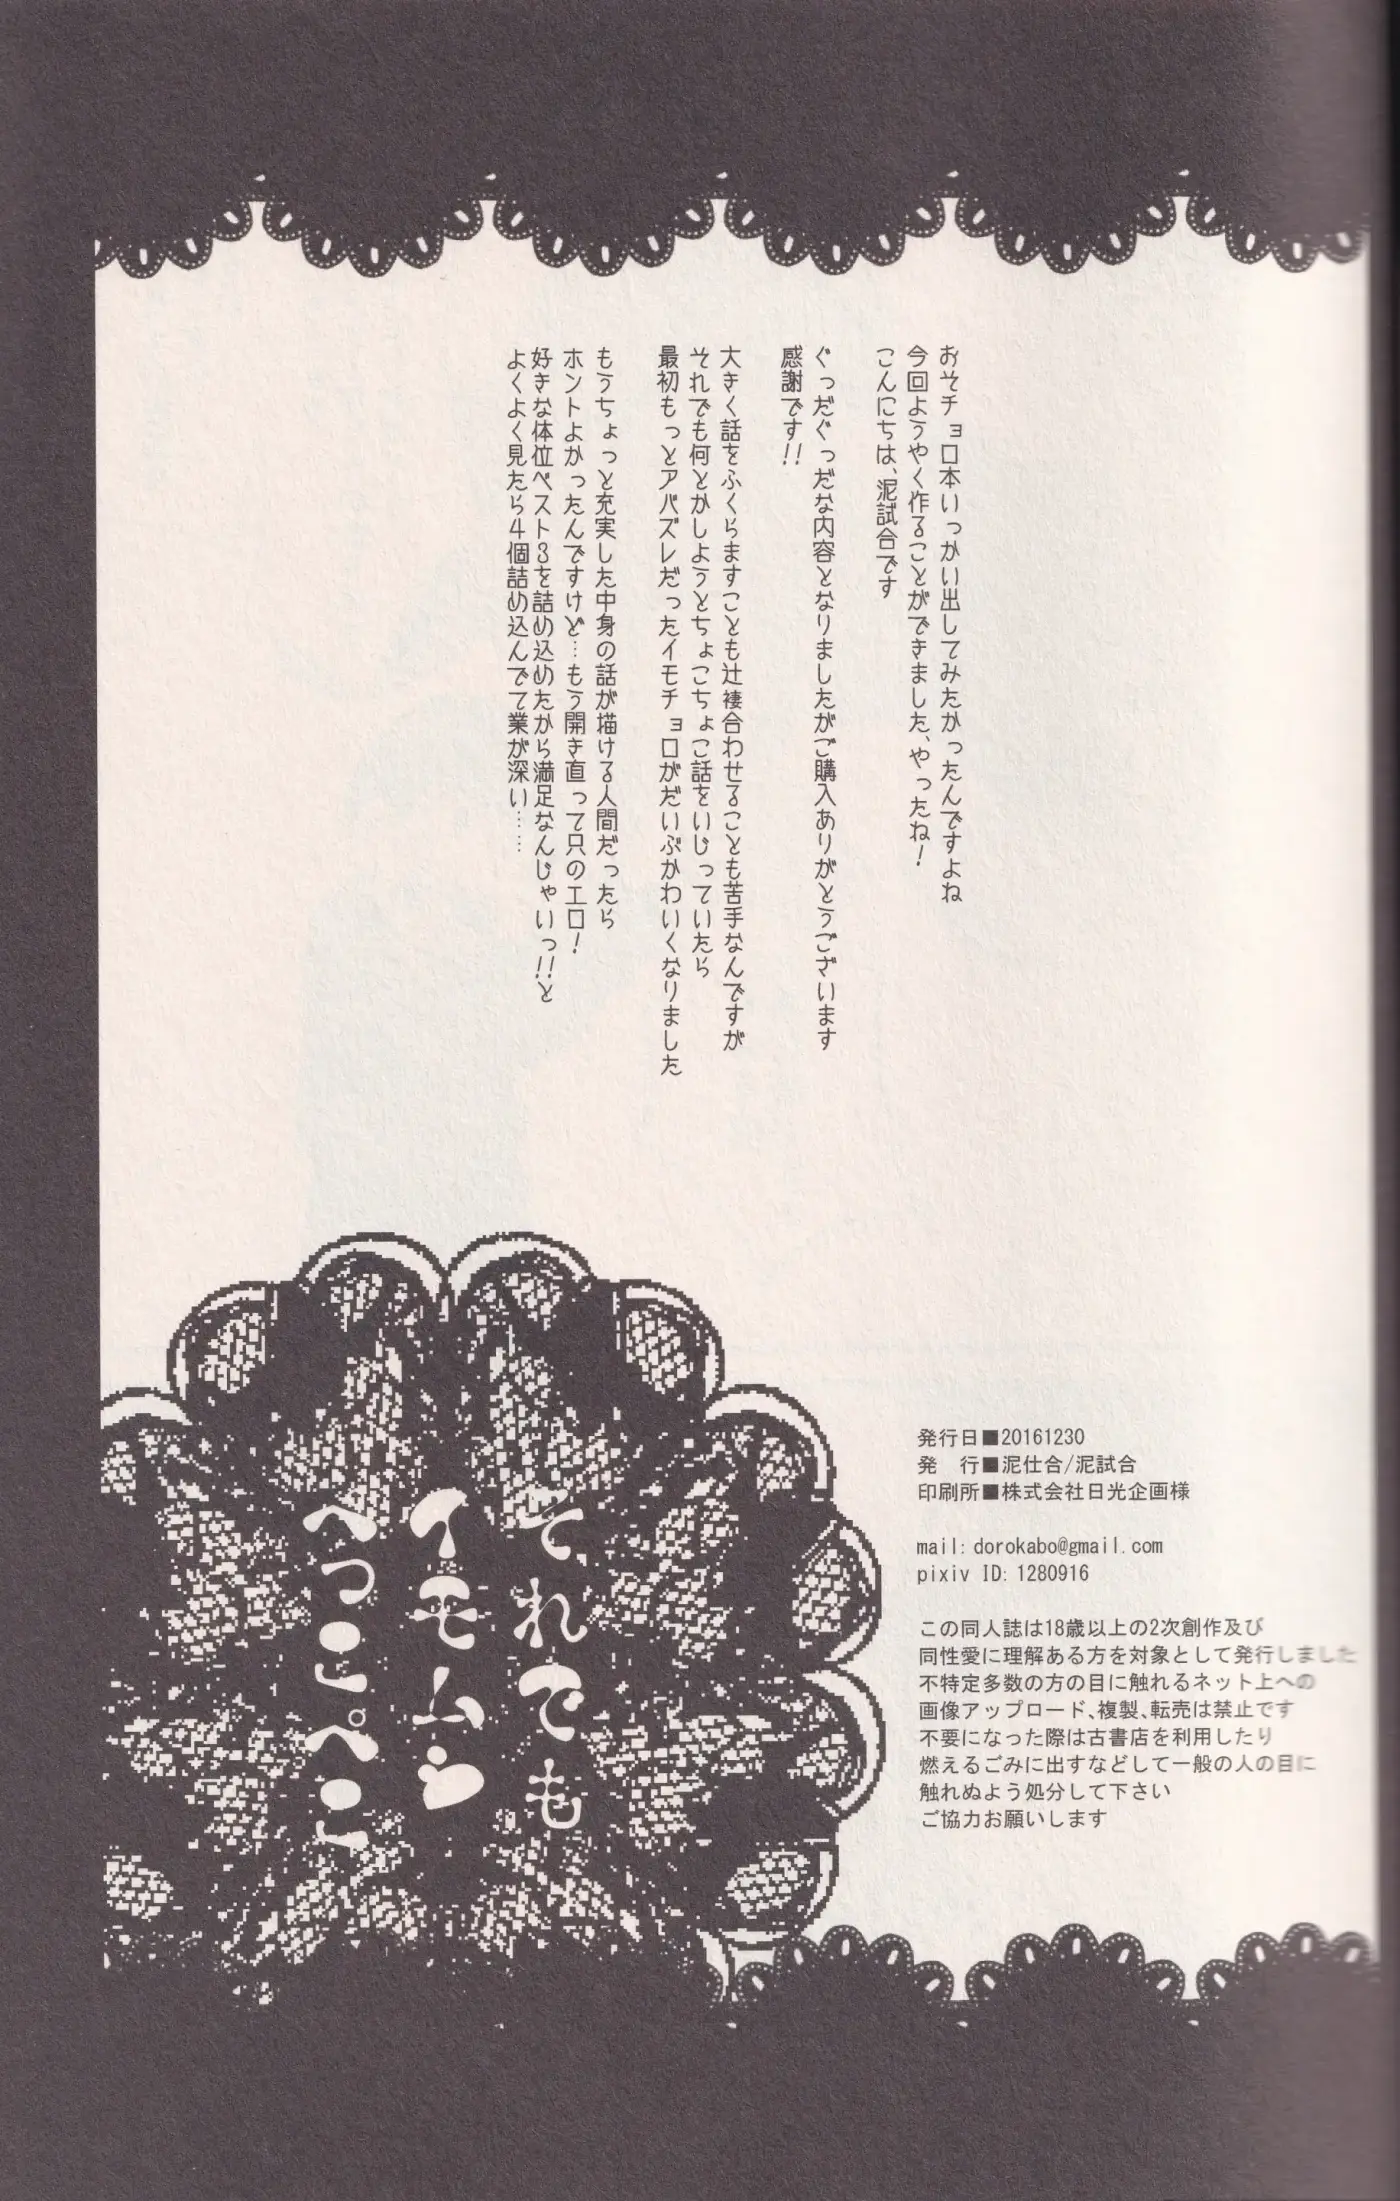 おそチョロ本いっかい出してみたかったんですよね
今回ようやく作ることができました、やったね!
こんにちは、泥試合です
ぐっだぐっだな内容となりましたがご購入ありがとうございます
感謝です!!
大きく話をふくらますことも辻褄合わせることも苦手なんですが
それでも何とかしようとちょこちょこ話をいじっていたら
最初もっとアバズレだったイモチョロがだいぶかわいくなりました
もうちょっと充実した中身の話が描ける人間だったら
ホントよかったんですけど…もう開き直って只のエロ!
好きな体位ベスト3を詰め込めたから満足なんじゃいっ!!と
よくよく見たら4個詰め込んでて業が深い……
それでも
イモムシ
へっこぺこ
発行日■20161230
発　行■泥仕合/泥試合
印刷所■株式会社日光企画様
mail:dorokabo@gmail.com
pixiv ID:1280916
この同人誌は18歳以上の2次創作及び
同性愛に理解ある方を対象として発行しました
不特定多数の方の目に触れるネット上への
画像アップロード、複製、転売は禁止です
不要になった際は古書店を利用したり
燃えるごみに出すなどして一般の人の目に
触れぬよう処分して下さい
ご協力お願いします